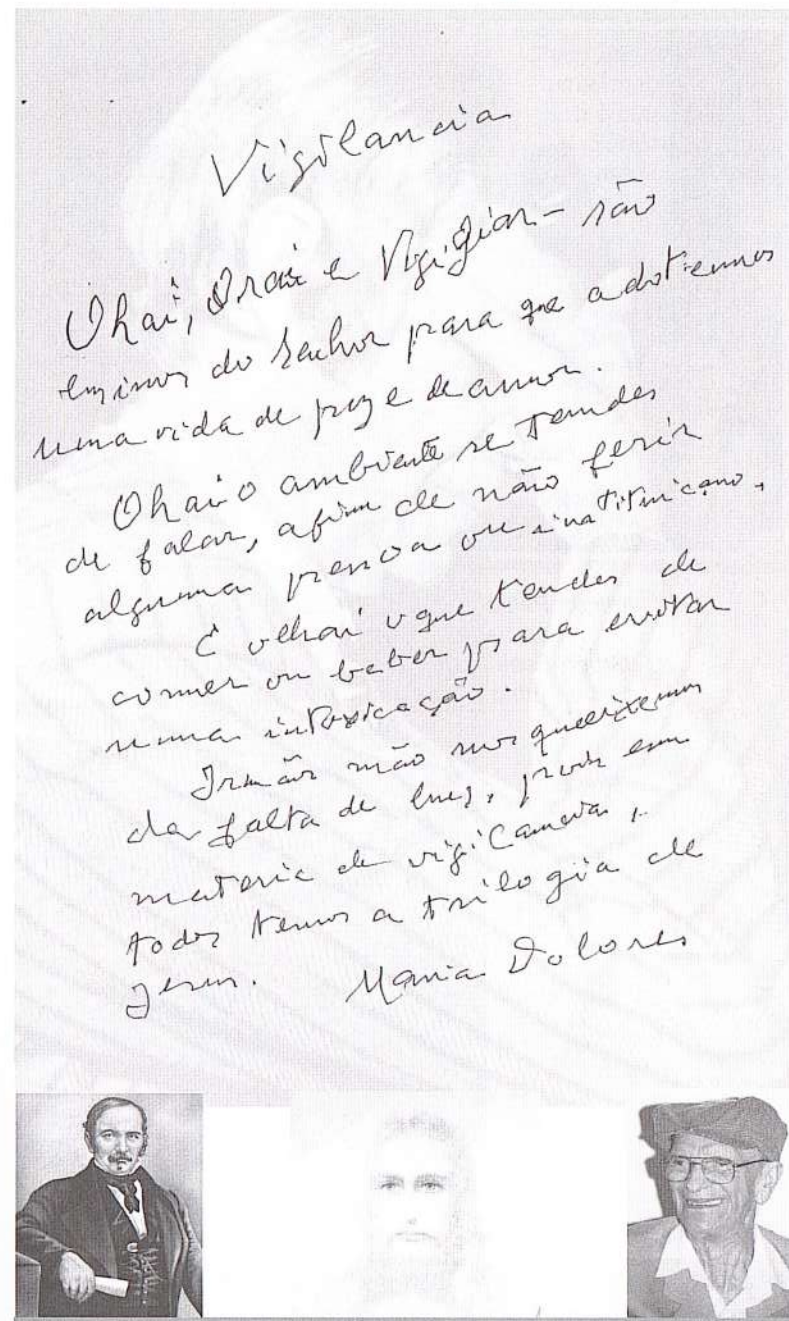 Vigilancia
Olhai, Orai e Vigiai - são
ensinos do Senhor para que adotemos
uma vida de paz e de amor.
Olhai o ambiente se tendes
de falar, afim de não ferir
alguma pessoa ou instituição.
E olhai o que tendes de
comer ou beber para evitar
uma intoxicação.
Irmãos não nos queixemos
da falta de luz, pois em
materia de vigilancia,
todos temos a trilogia de
Jesus. Maria Dolores